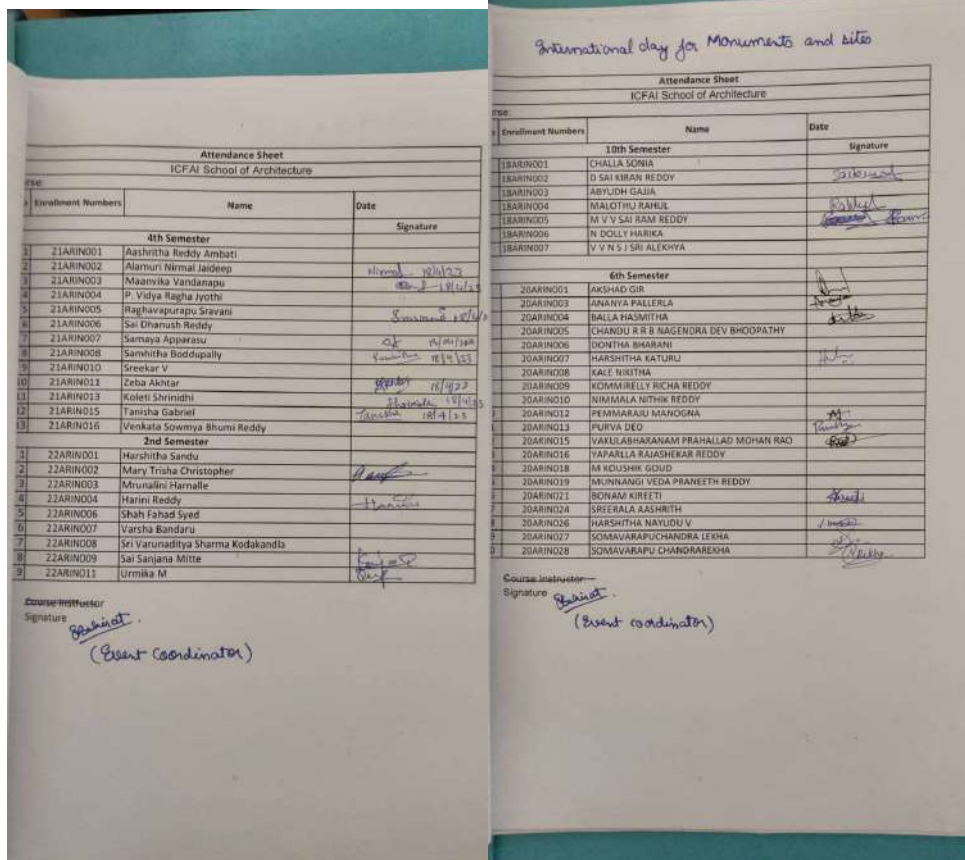 Attendance Sheet
ICFAI School of Architecture
rse:
Enrollment Numbers Name Date
Signature
4th Semester
1 21ARIN001 Aashritha Reddy Ambati
2 21ARIN002 Alamuri Nirmal Jaideep Nirmal 18/4/23
3 21ARIN003 Maanvika Vandanapu 18/4/23
4 21ARIN004 P. Vidya Ragha Jyothi
5 21ARIN005 Raghavapurapu Sravani
6 21ARIN006 Sai Dhanush Reddy
7 21ARIN007 Samaya Apparasu
8 21ARIN008 Samhitha Boddupally 18/4/23
9 21ARIN010 Sreekar V
10 21ARIN011 Zeba Akhtar 18/4/23
11 21ARIN013 Koleti Shrinidhi 18/4/23
12 21ARIN015 Tanisha Gabriel Tanisha 18/4/23
13 21ARIN016 Venkata Sowmya Bhumi Reddy
2nd Semester
1 22ARIN001 Harshitha Sandu
2 22ARIN002 Mary Trisha Christopher
3 22ARIN003 Mrunalini Harnalle
4 22ARIN004 Harini Reddy Harini
5 22ARIN006 Shah Fahad Syed
6 22ARIN007 Varsha Bandaru
7 22ARIN008 Sri Varunaditya Sharma Kodakandla
8 22ARIN009 Sai Sanjana Mitte
9 22ARIN011 Urmika M
Course Instructor
Signature
(Event coordinator)
International day for Monuments and sites
Attendance Sheet
ICFAI School of Architecture
rse:
Enrollment Numbers Name Date
Signature
10th Semester
18ARIN001 CHALLA SONIA
18ARIN002 D SAI KIRAN REDDY Saikiran
18ARIN003 ABYUDH GAJJA
18ARIN004 MALOTHU RAHUL Rahul
18ARIN005 M V V SAI RAM REDDY
18ARIN006 N DOLLY HARIKA
18ARIN007 V V N S J SRI ALEKHYA
6th Semester
20ARIN001 AKSHAD GIR
20ARIN003 ANANYA PALLERLA
20ARIN004 BALLA HASMITHA
20ARIN005 CHANDU R R B NAGENDRA DEV BHOOPATHY
20ARIN006 DONTHA BHARANI
20ARIN007 HARSHITHA KATURU
20ARIN008 KALE NIKITHA
20ARIN009 KOMMIRELLY RICHA REDDY
20ARIN010 NIMMALA NITHIK REDDY
20ARIN012 PEMMARAJU MANOGNA
20ARIN013 PURVA DEO
20ARIN015 VAKULABHARANAM PRAHALLAD MOHAN RAO
20ARIN016 YAPARLLA RAJASHEKAR REDDY
20ARIN018 M KOUSHIK GOUD
20ARIN019 MUNNANGI VEDA PRANEETH REDDY
20ARIN021 BONAM KIREETI Kireeti
20ARIN024 SREERALA AASHRITH
20ARIN026 HARSHITHA NAYUDU V
20ARIN027 SOMAVARAPUCHANDRA LEKHA
20ARIN028 SOMAVARAPU CHANDRAREKHA
Course Instructor
Signature
(Event coordinator)